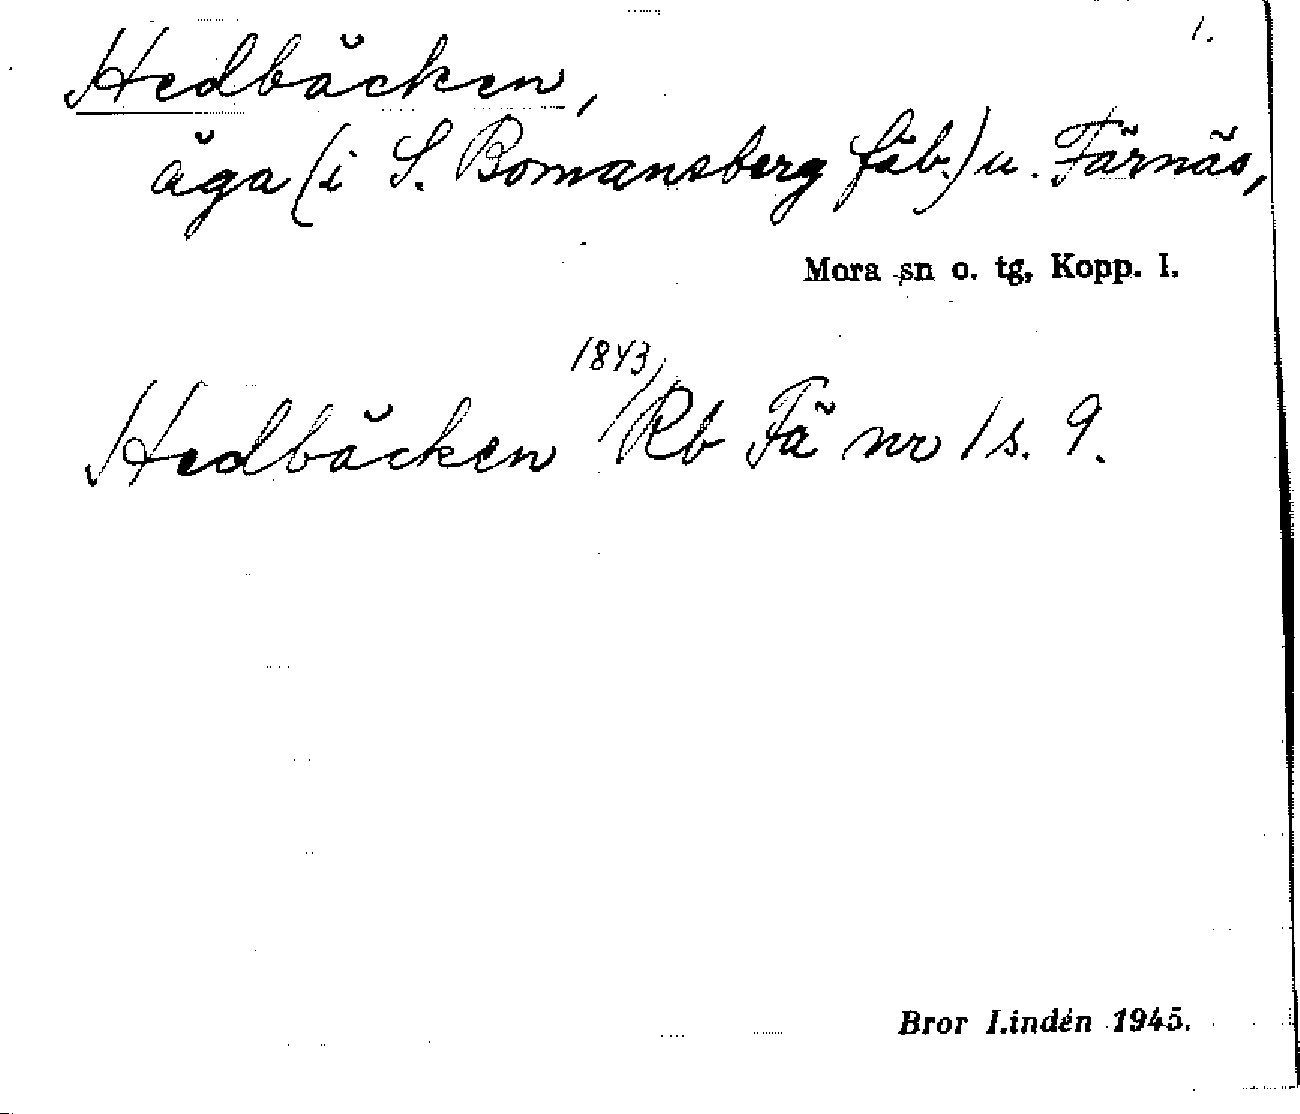 1.
Hedbäcken,
äga (i S. Bomansberg fäb.) u. Färnäs,
Mora sn o. tg, Kopp. l.
1843
Hedbäcken Rb Fä nr 1 s. 9.
Bror Lindén 1945.